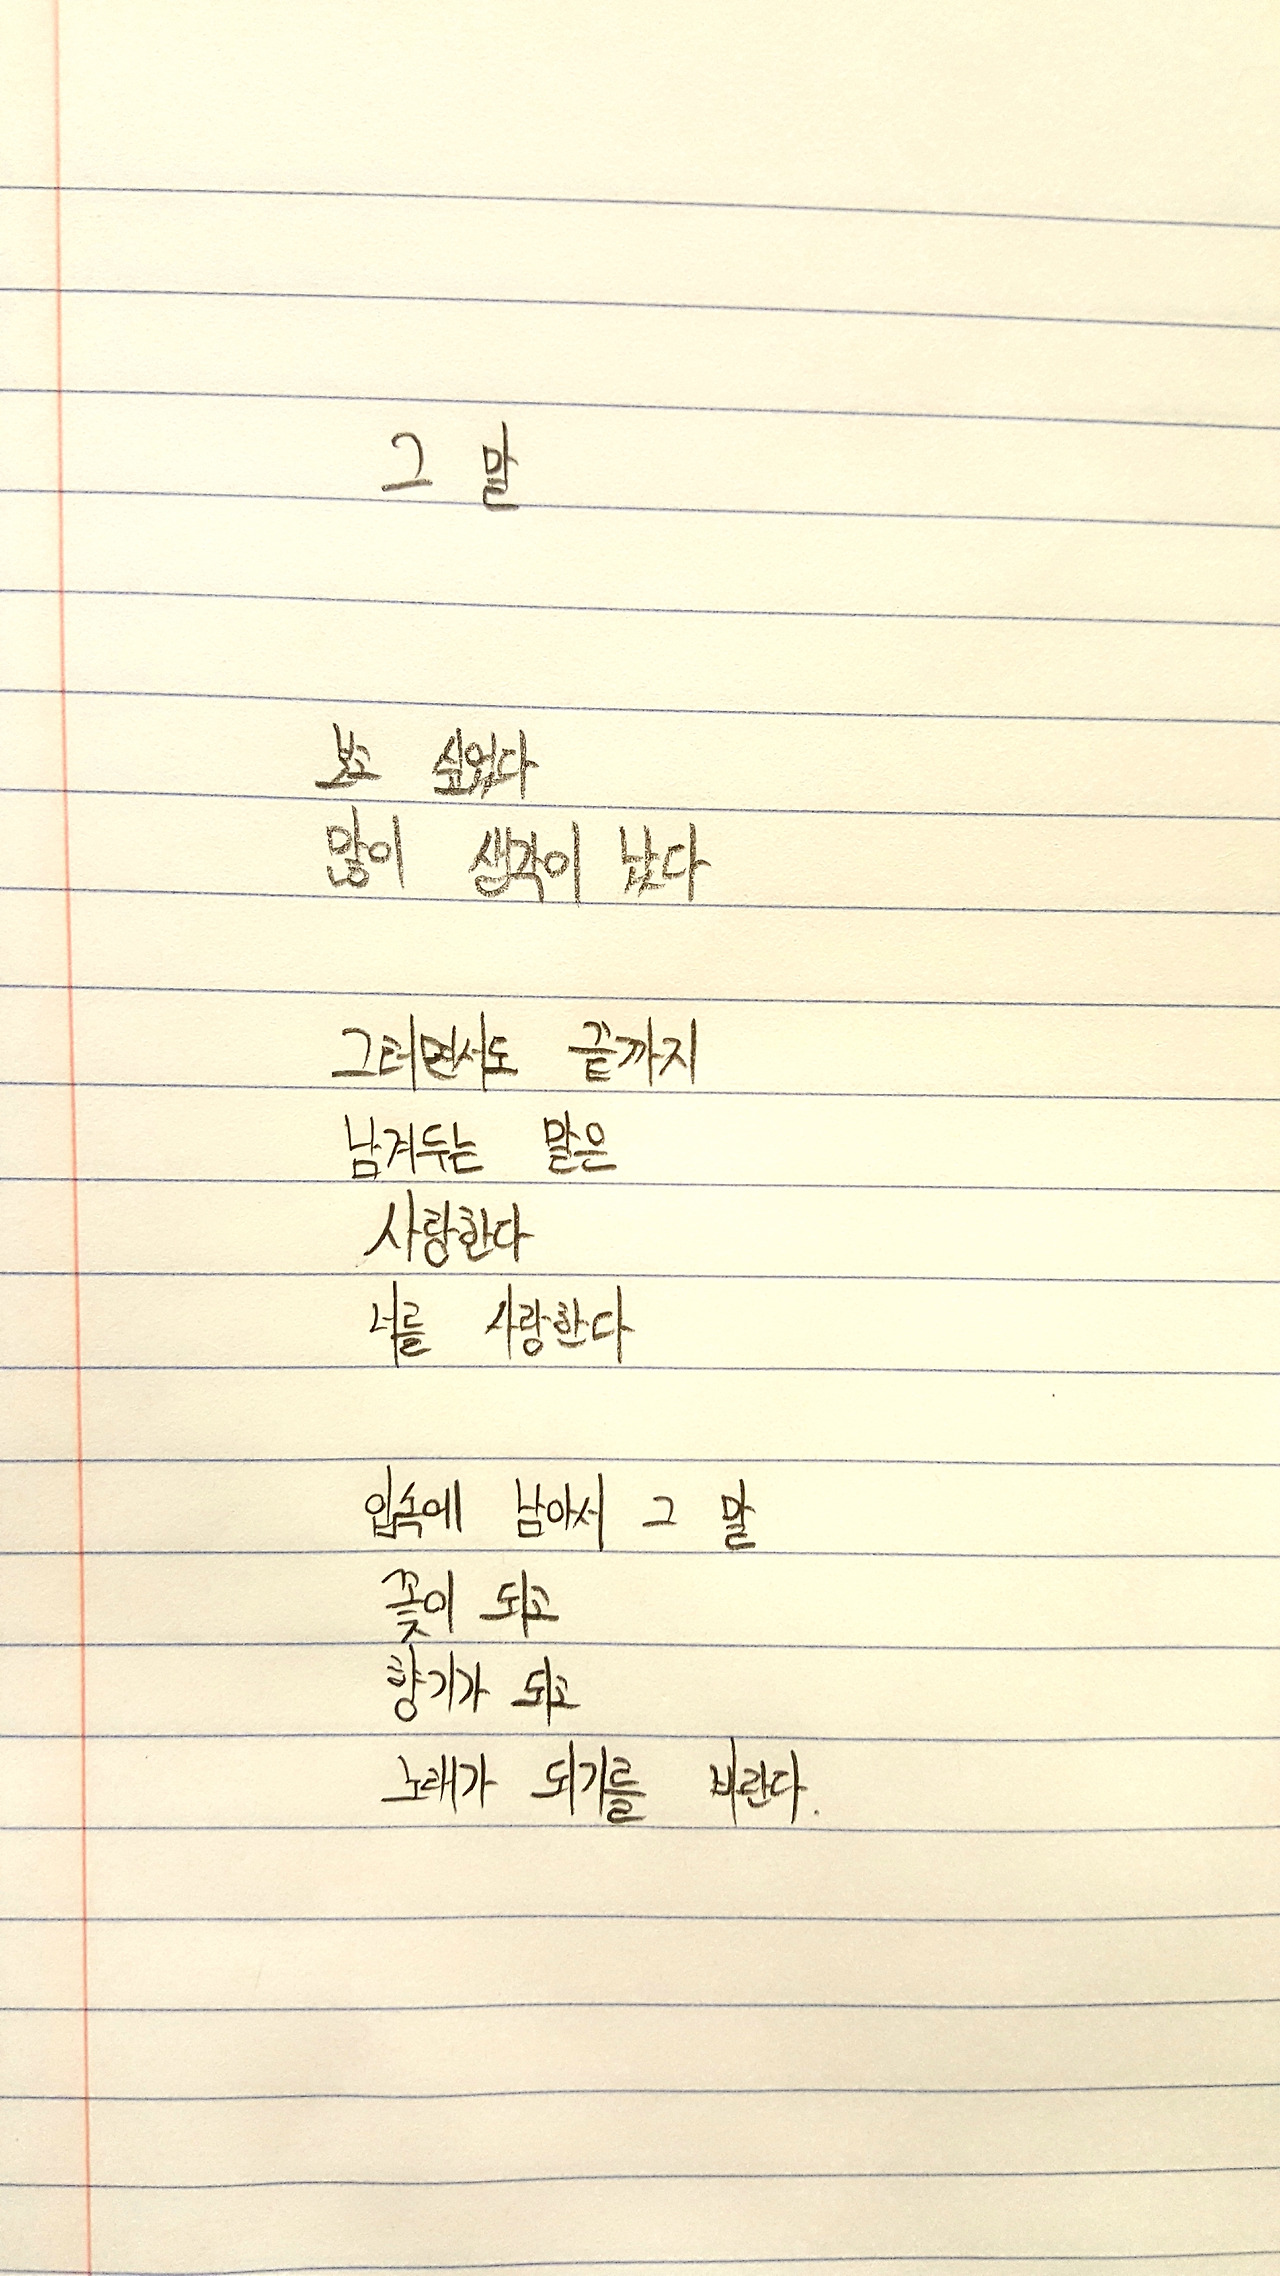 그 말
보고 싶었다
많이 생각이 났다
그러면서도 끝까지
남겨두는 말은
사랑한다
너를 사랑한다
입속에 남아서 그 말
꽃이 되고
향기가 되고
노래가 되기를 바란다.